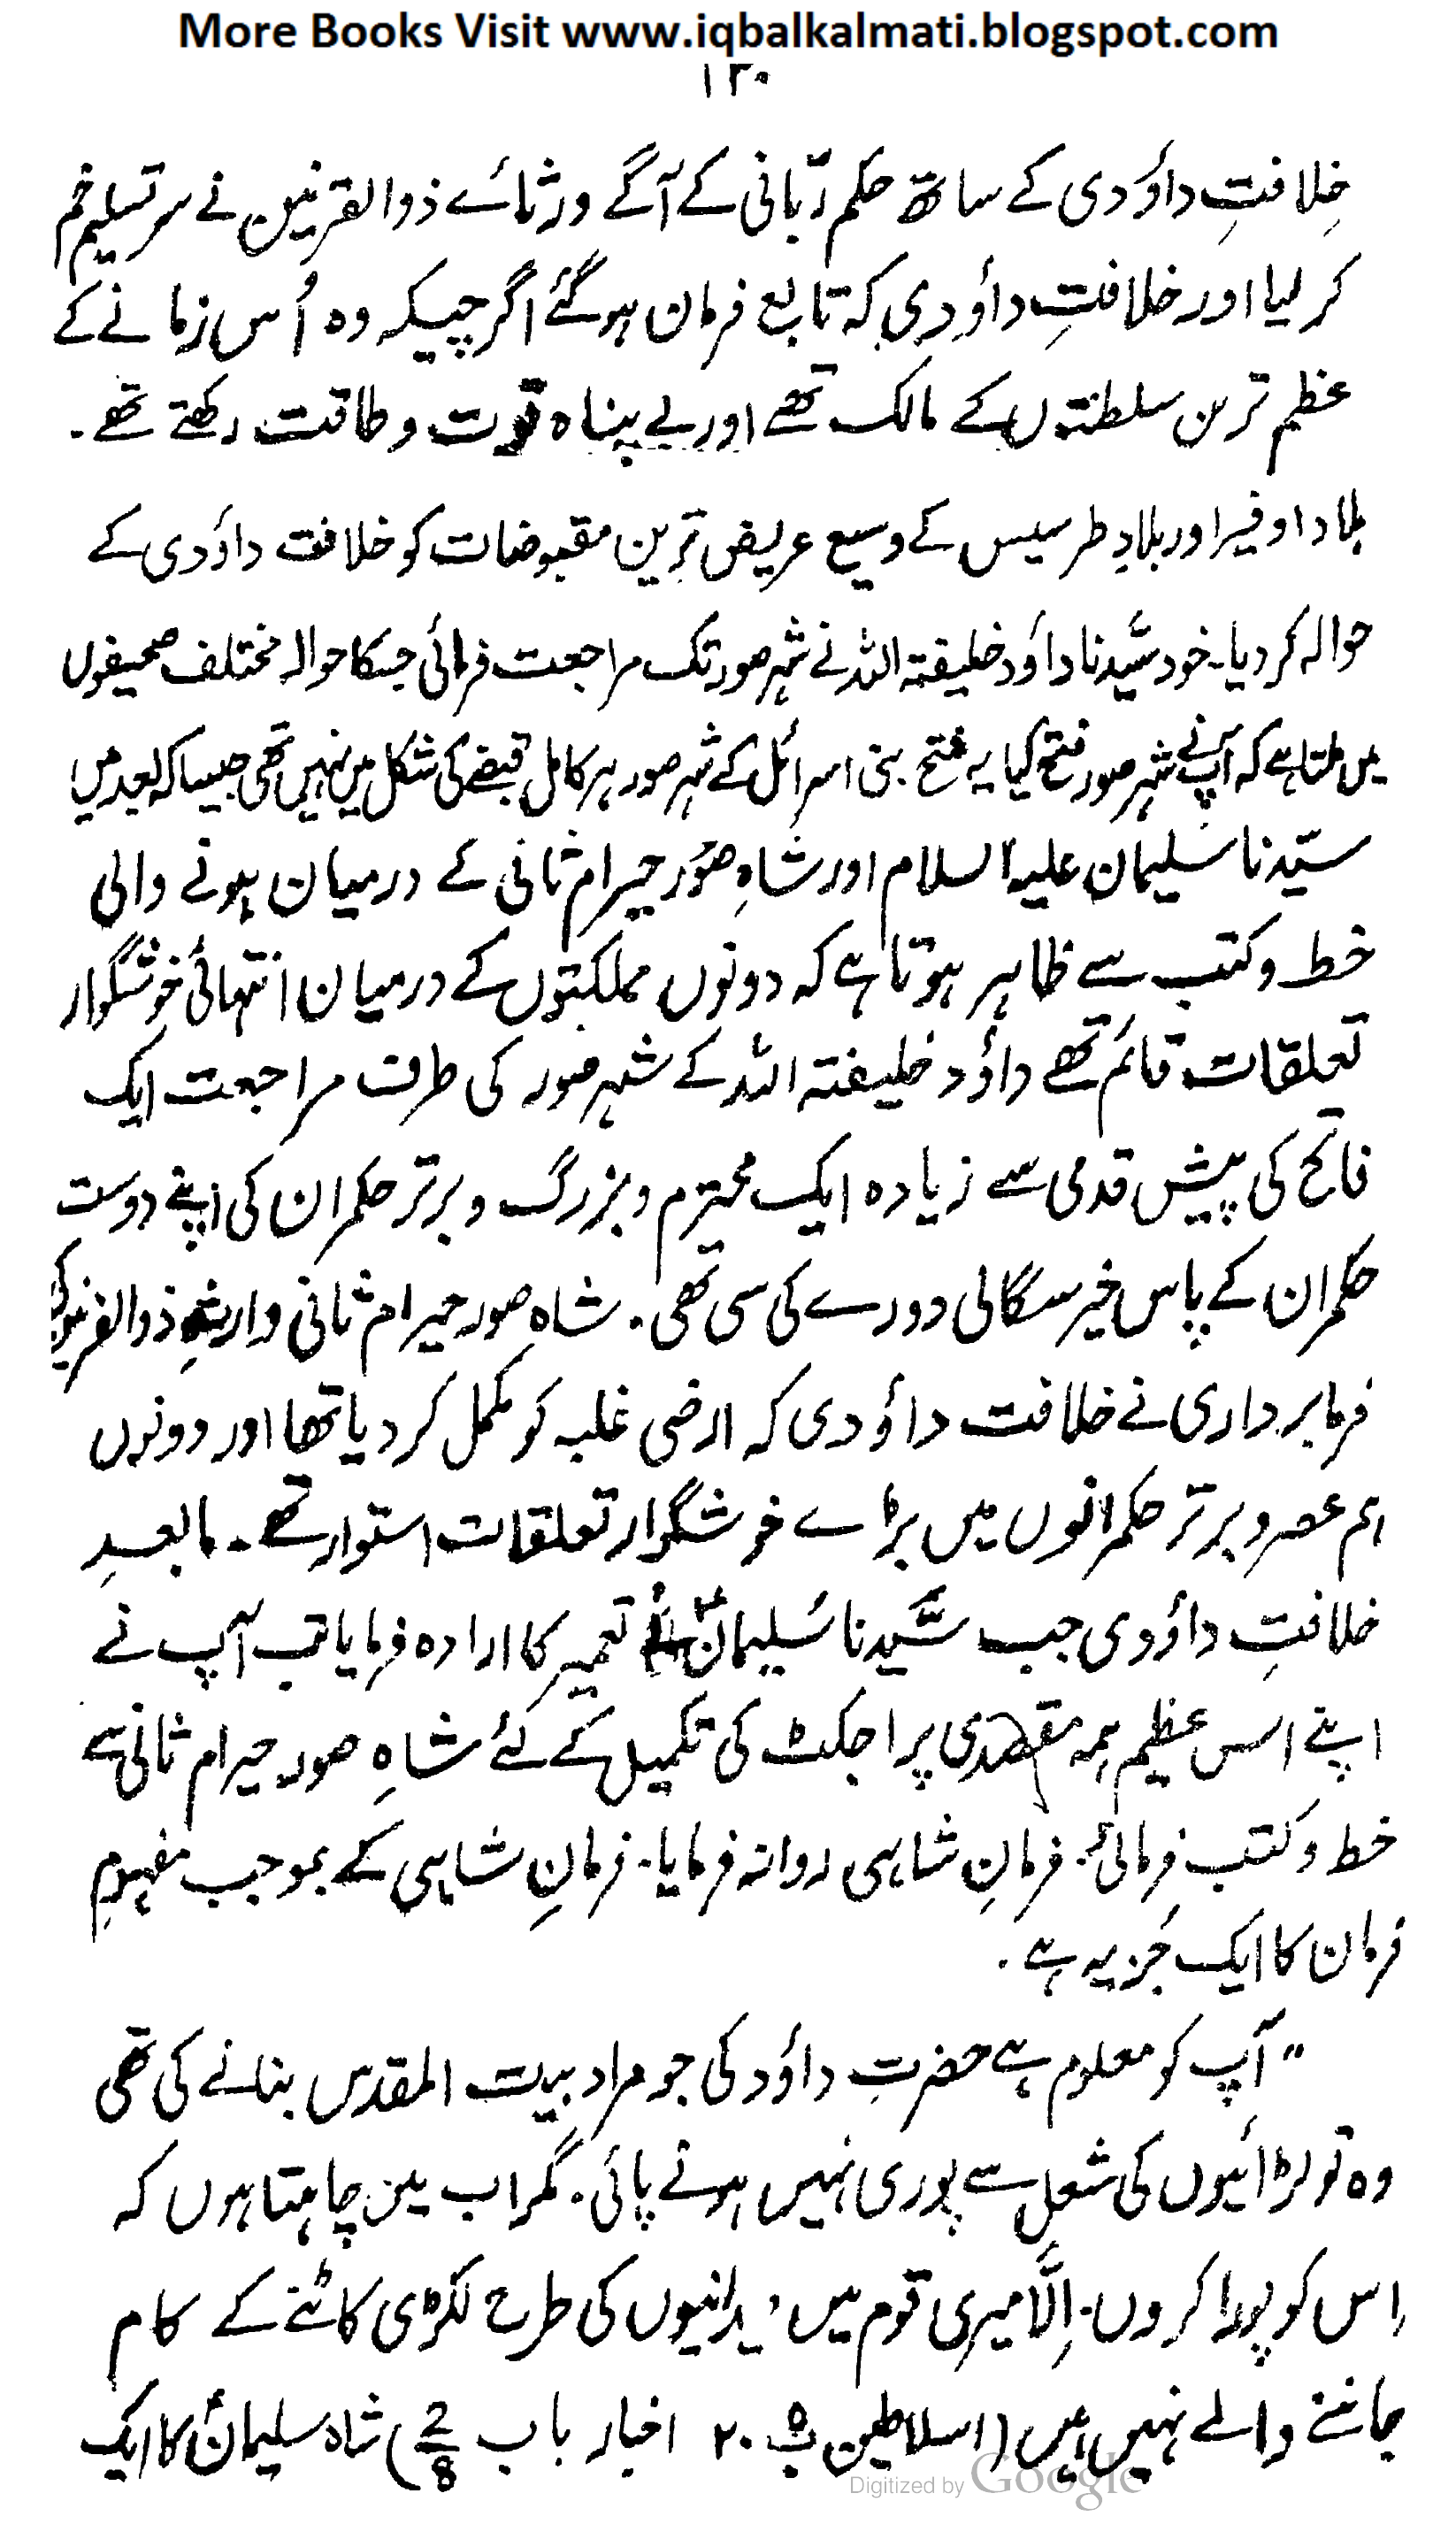 More Books Visit www.iqbalkalmati.blogspot.com
۱۳۰
خِلافتِ داؤدی کے ساتھ حکم ربّانی کے آگے ورثائے ذوالقرنین نے سر تسلیم خم
کر لیا اور خلافتِ داؤدِی کہ تابع فرمان ہوگئے اگرچیکہ وہ اُس زمانے کے
عظیم ترین سلطنتوں کے مالک تھے اور بے پناہ قوت و طاقت رکھتے تھے۔
بلاد اوفیر اور بلادِ طرسیس کے وسیع عریض ترین مقبوضات کو خلافت داؤدی کے
حوالہ کر دیا۔ خود سیّدنا داؤد خلیفتہ اللہ نے شہر صور تک مراجعت فرمائی جسکا حوالہ مختلف صحیفوں
میں ملتا ہے کہ آپ نے شہر صور فتح کیا یہ فتح بنی اسرائل کے شہر صور ہر کامل قبضے کی شکل میں نہیں تھی جیسا کہ بعد میں
سیّدنا سُلیمان علیہ السلام اور شاہِ صُور حیرام ثانی کے درمیان ہونے والی
خط و کتب سے ظاہر ہوتا ہے کہ دونوں مملکتوں کے درمیان انتہائی خوشگوار
تعلقات قائم تھے داؤد خلیفتہ اللہ کے شہر صور کی طرف مراجعت ایک
فاتح کی پیش قدمی سے زیادہ ایک محترم و بزرگ و برتر حکمران کی اپنے دوست
حکمران کے پاس خیر سگالی دورے کی سی تھی۔ شاہ صور حیرام ثانی وارثِ ذوالقرنین کی
فرمابرداری نے خلافت داؤدی کہ ارضی غلبہ کو مکمل کر دیا تھا اور دونوں
ہم عصر و برتر حکمرانوں میں بڑے خوشگوار تعلقات استوار تھے۔ مابعدِ
خلافتِ داؤدی جب سیّدنا سُلیمانؑ تعمیر کا ارادہ فرمایا تب آپ نے
اپنے اس عظیم ہمہ مقصدی پراجکٹ کی تکمیل کے لئے شاہِ صور حیرام ثانی سے
خط و کتب فرمائی۔ فرمانِ شاہی روانہ فرمایا۔ فرمانِ شاہی کے بموجب مفہومِ
فرمان کا ایک جُز یہ ہے۔
”آپ کو معلوم ہے حضرتِ داؤد کی جو مراد بیت المقدس بنانے کی تھی
وہ تو لڑائیوں کی شعل سے پوری نہیں ہونے پائی۔ مگر اب میں چاہتا ہوں کہ
اس کو پورا کروں۔ اِلّا میری قوم میں، یدانیوں کی طرح لکڑی کاٹنے کے کام
جاننے والے نہیں ہیں (اسلاطین ب ۵ ۲۰ اخبار باب 2/8) شاہ سلیمانؑ کا ایک
Digitized by Google